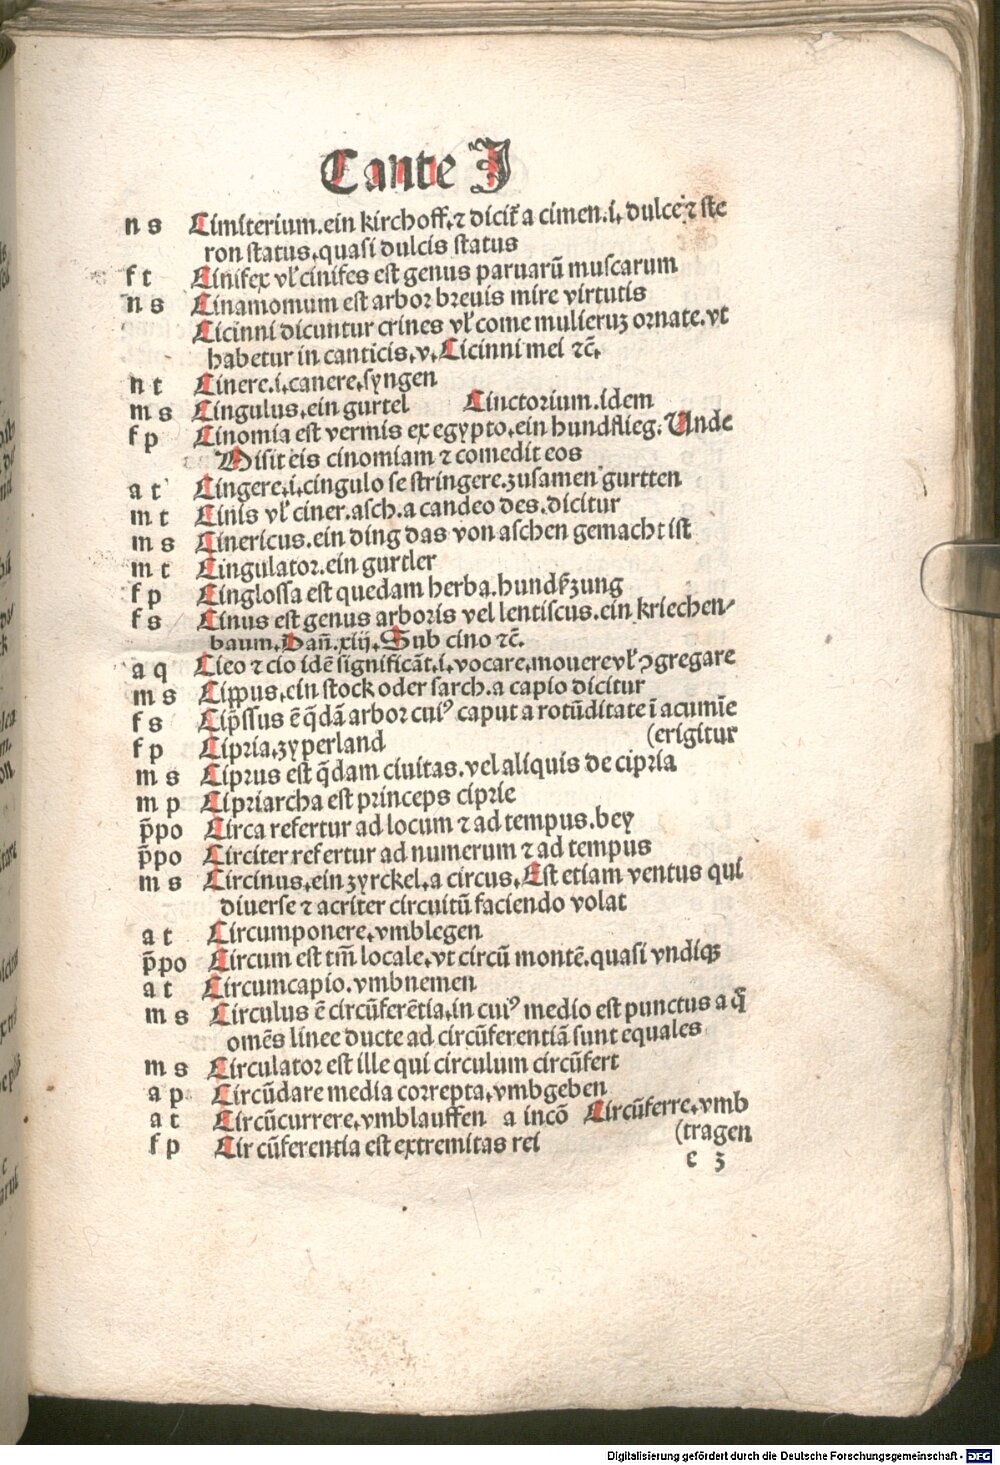 Cante J
n s Cimiterium.ein kirchoff.⁊ dicit̃ a cimen.i.dulce ⁊ ste
ron status.quasi dulcis status
f t Cinifex vl̓ cinifes est genus paruarū muscarum
n s Cinamomum est arbor breuis mire virtutis
Cicinni dicuntur crines vl̓ come mulieruꝫ ornate.vt
habetur in canticis.v.Cicinni mei ⁊c̃.
n t Cinere.i.canere.syngen
m s Cingulus.ein gurtel Cinctorium.idem
f p Cinomia est vermis ex egypto.ein hundflieg.Unde
Misit eis cinomiam ⁊ comedit eos
a t Cingere.i.cingulo se stringere.zusamen gurtten
m t Cinis vl̓ ciner.asch.a candeo des.dicitur
m s Cinericus.ein ding das von aschen gemacht ist
m t Cingulator.ein gurtler
f p Cinglossa est quedam herba.hundßzung
f s Cinus est genus arboris vel lentiscus.ein kriechen/
baum.Dañ.xiij.Sub cino ⁊c̃.
a q Cieo ⁊ cio idē significāt.i.vocare.mouere vl̓ ꝯgregare
m s Cippus.ein stock oder sarch.a capio dicitur
f s Cip̄ssus ē q̄dā arbor cuiꝰ caput a rotūditate ī acumīe
f p Cipria.zyperland (erigitur
m s Ciprus est q̄dam ciuitas.vel aliquis de cipria
m p Cipriarcha est princeps ciprie
p̄po Circa refertur ad locum ⁊ ad tempus.bey
p̄po Circiter refertur ad numerum ⁊ ad tempus
m s Circinus.ein zyrckel.a circus.Est etiam ventus qui
diuerse ⁊ acriter circuitū faciendo volat
a t Circumponere.vmblegen
p̄po Circum est tm̄ locale.vt circū montē.quasi vndiqꝫ
a t Circumcapio.vmbnemen
m s Circulus ē circūferētia.in cuiꝰ medio est punctus a q̄
omēs linee ducte ad circūferentiā sunt equales
m s Circulator est ille qui circulum circūfert
a p Circūdare media correpta.vmbgeben
a t Circūcurrere.vmblauffen a incō Circūferre.vmb
f p Circūferentia est extremitas rei (tragen
e 3
Digitalisierung gefördert durch die Deutsche Forschungsgemeinschaft - DFG